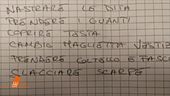 NASTRARE LE DITA
PRENDERE I GUANTI
COPRIRE TESTA
CAMBIO MAGLIETTA VESTITI
PRENDERE COLTELLO E FASCE
SLACCIARE SCARPE